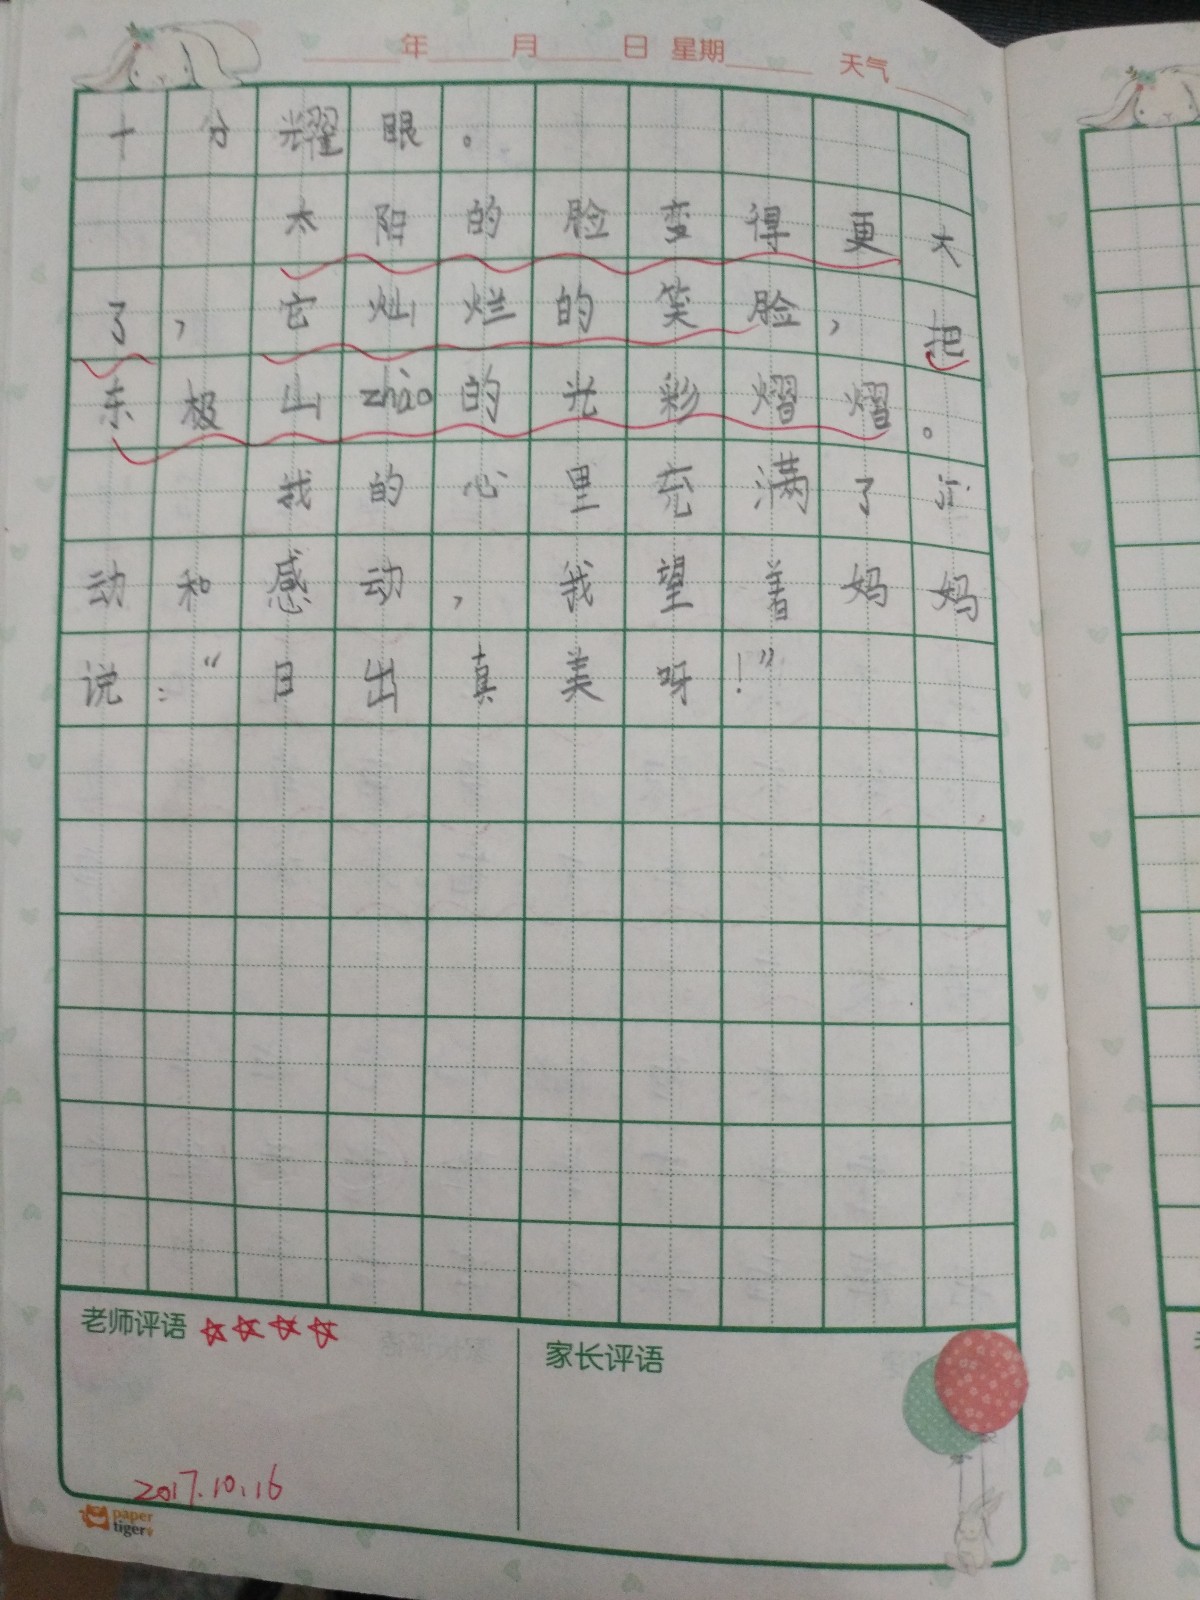 年 月 日 星期 天气
十分耀眼。
太阳的脸变得更大
了，它灿烂的笑脸，把
东极山zhào的光彩熠熠。
我的心里充满了
动和感动，我望着妈妈
说：“日出真美呀！”
老师评语 ☆☆☆☆
家长评语
2017.10.16
paper
tiger